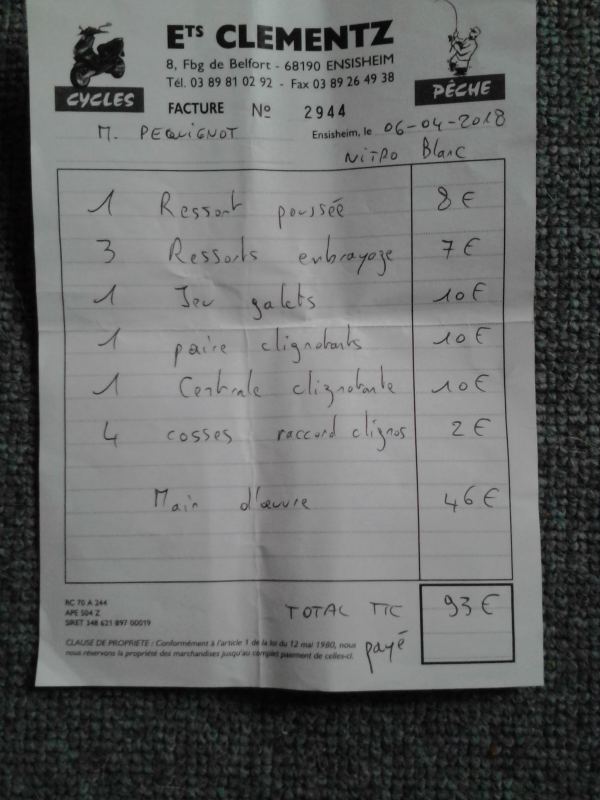 ETS CLEMENTZ
8, Fbg de Belfort - 68190 ENSISHEIM
Tél. 03 89 81 02 92 - Fax 03 89 26 49 38
CYCLES
PÊCHE
FACTURE No 2944
M. PEQUIGNOT
Ensisheim, le 06-04-2018
NITRO Blanc
1 Ressort poussée 8 €
3 Ressorts embrayage 7 €
1 Jeu galets 10 €
1 paire clignotants 10 €
1 Centrale clignotante 10 €
4 cosses raccord clignos 2 €
Main d'œuvre 46 €
RC 70 A 244
APE 504 Z
SIRET 348 621 897 00019
TOTAL TTC 93 €
payé
CLAUSE DE PROPRIETE : Conformément à l'article 1 de la loi du 12 mai 1980, nous
nous réservons la propriété des marchandises jusqu'au complet paiement de celles-ci.